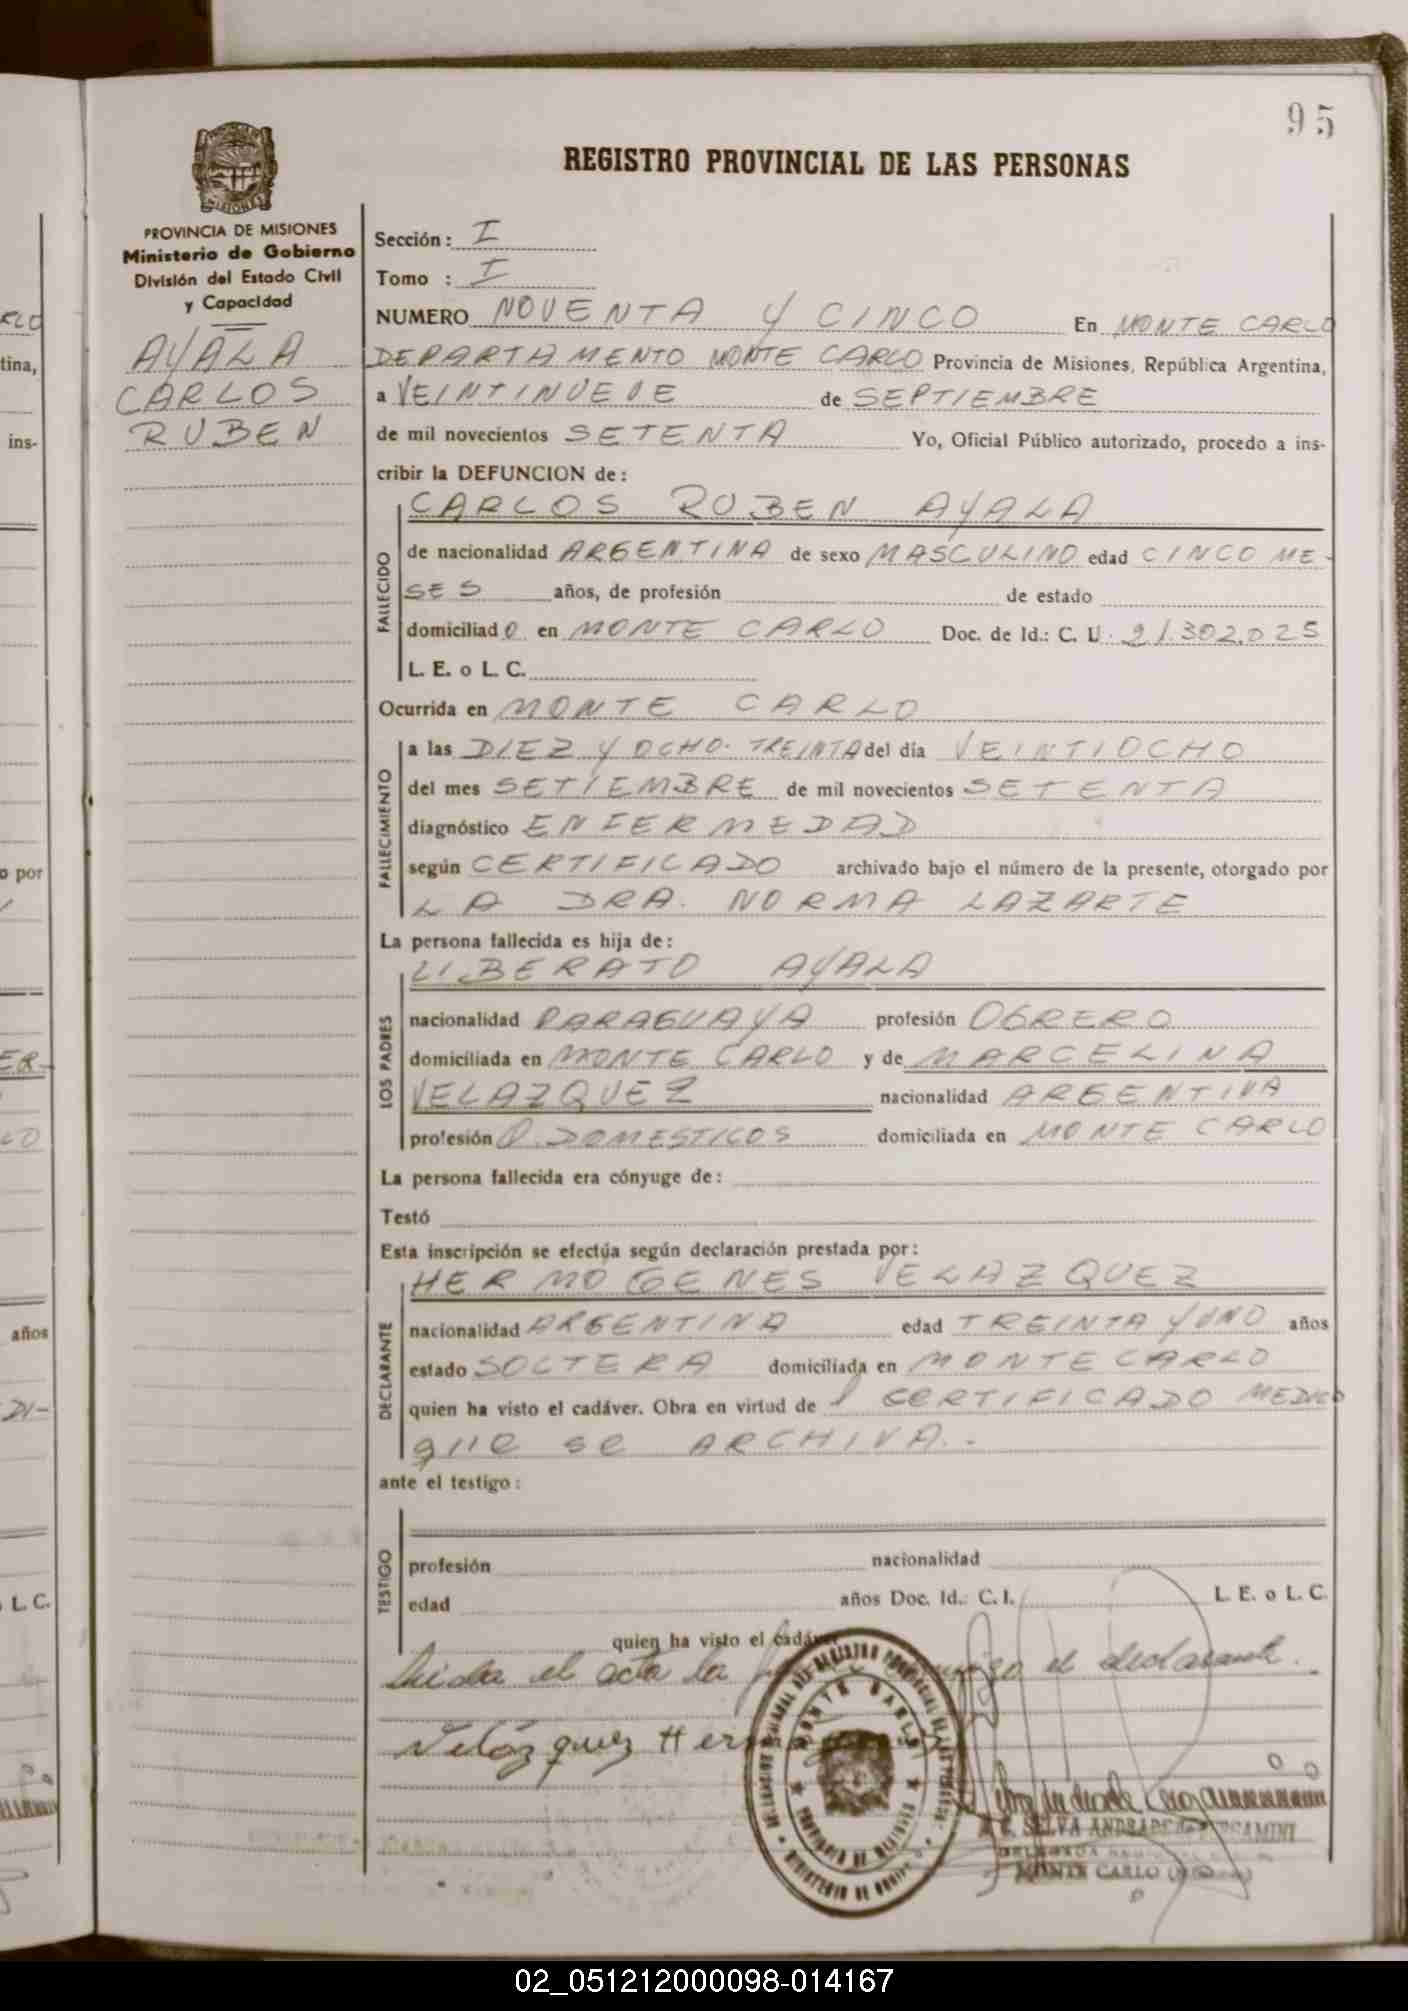 95
REGISTRO PROVINCIAL DE LAS PERSONAS
PROVINCIA DE MISIONES
Ministerio de Gobierno
División del Estado Civil
y Capacidad
AYALA
CARLOS
RUBEN
Sección: I
Tomo : I
NUMERO NOVENTA Y CINCO En MONTE CARLO
DEPARTAMENTO MONTE CARLO Provincia de Misiones, República Argentina,
a VEINTINUEVE de SEPTIEMBRE
de mil novecientos SETENTA Yo, Oficial Público autorizado, procedo a ins-
cribir la DEFUNCION de:
CARLOS RUBEN AYALA
FALLECIDO
de nacionalidad ARGENTINA de sexo MASCULINO edad CINCO ME-
SES años, de profesión de estado
domiciliado en MONTE CARLO Doc. de Id.: C. U. 21.302.025
L. E. o L. C.
Ocurrida en MONTE CARLO
FALLECIMIENTO
a las DIEZ Y OCHO. TREINTA del día VEINTIOCHO
del mes SETIEMBRE de mil novecientos SETENTA
diagnóstico ENFERMEDAD
según CERTIFICADO archivado bajo el número de la presente, otorgado por
LA DRA. NORMA LAZARTE
La persona fallecida es hija de:
LIBERATO AYALA
LOS PADRES
nacionalidad PARAGUAYA profesión OBRERO
domiciliada en MONTE CARLO y de MARCELINA
VELAZQUEZ nacionalidad ARGENTINA
profesión Q. DOMESTICOS domiciliada en MONTE CARLO
La persona fallecida era cónyuge de:
Testó
Esta inscripción se efectúa según declaración prestada por:
HERMOGENES VELAZQUEZ
DECLARANTE
nacionalidad ARGENTINA edad TREINTA Y UNO años
estado SOLTERA domiciliada en MONTE CARLO
quien ha visto el cadáver. Obra en virtud de l CERTIFICADO MEDICO
que se ARCHIVA.-
ante el testigo:
TESTIGO
profesión nacionalidad
edad años Doc. Id.: C. I. L. E. o L. C.
quien ha visto el cadáver
leida el acta la el declarante.
Velázquez
SELVA ANDRADE
MONTE CARLO
02_051212000098-014167